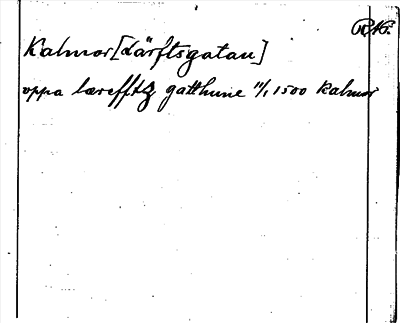 R.A.P.
Kalmar [Lärftsgatan]
oppa lærefftz gatthune 11/1 1500 Kalmar